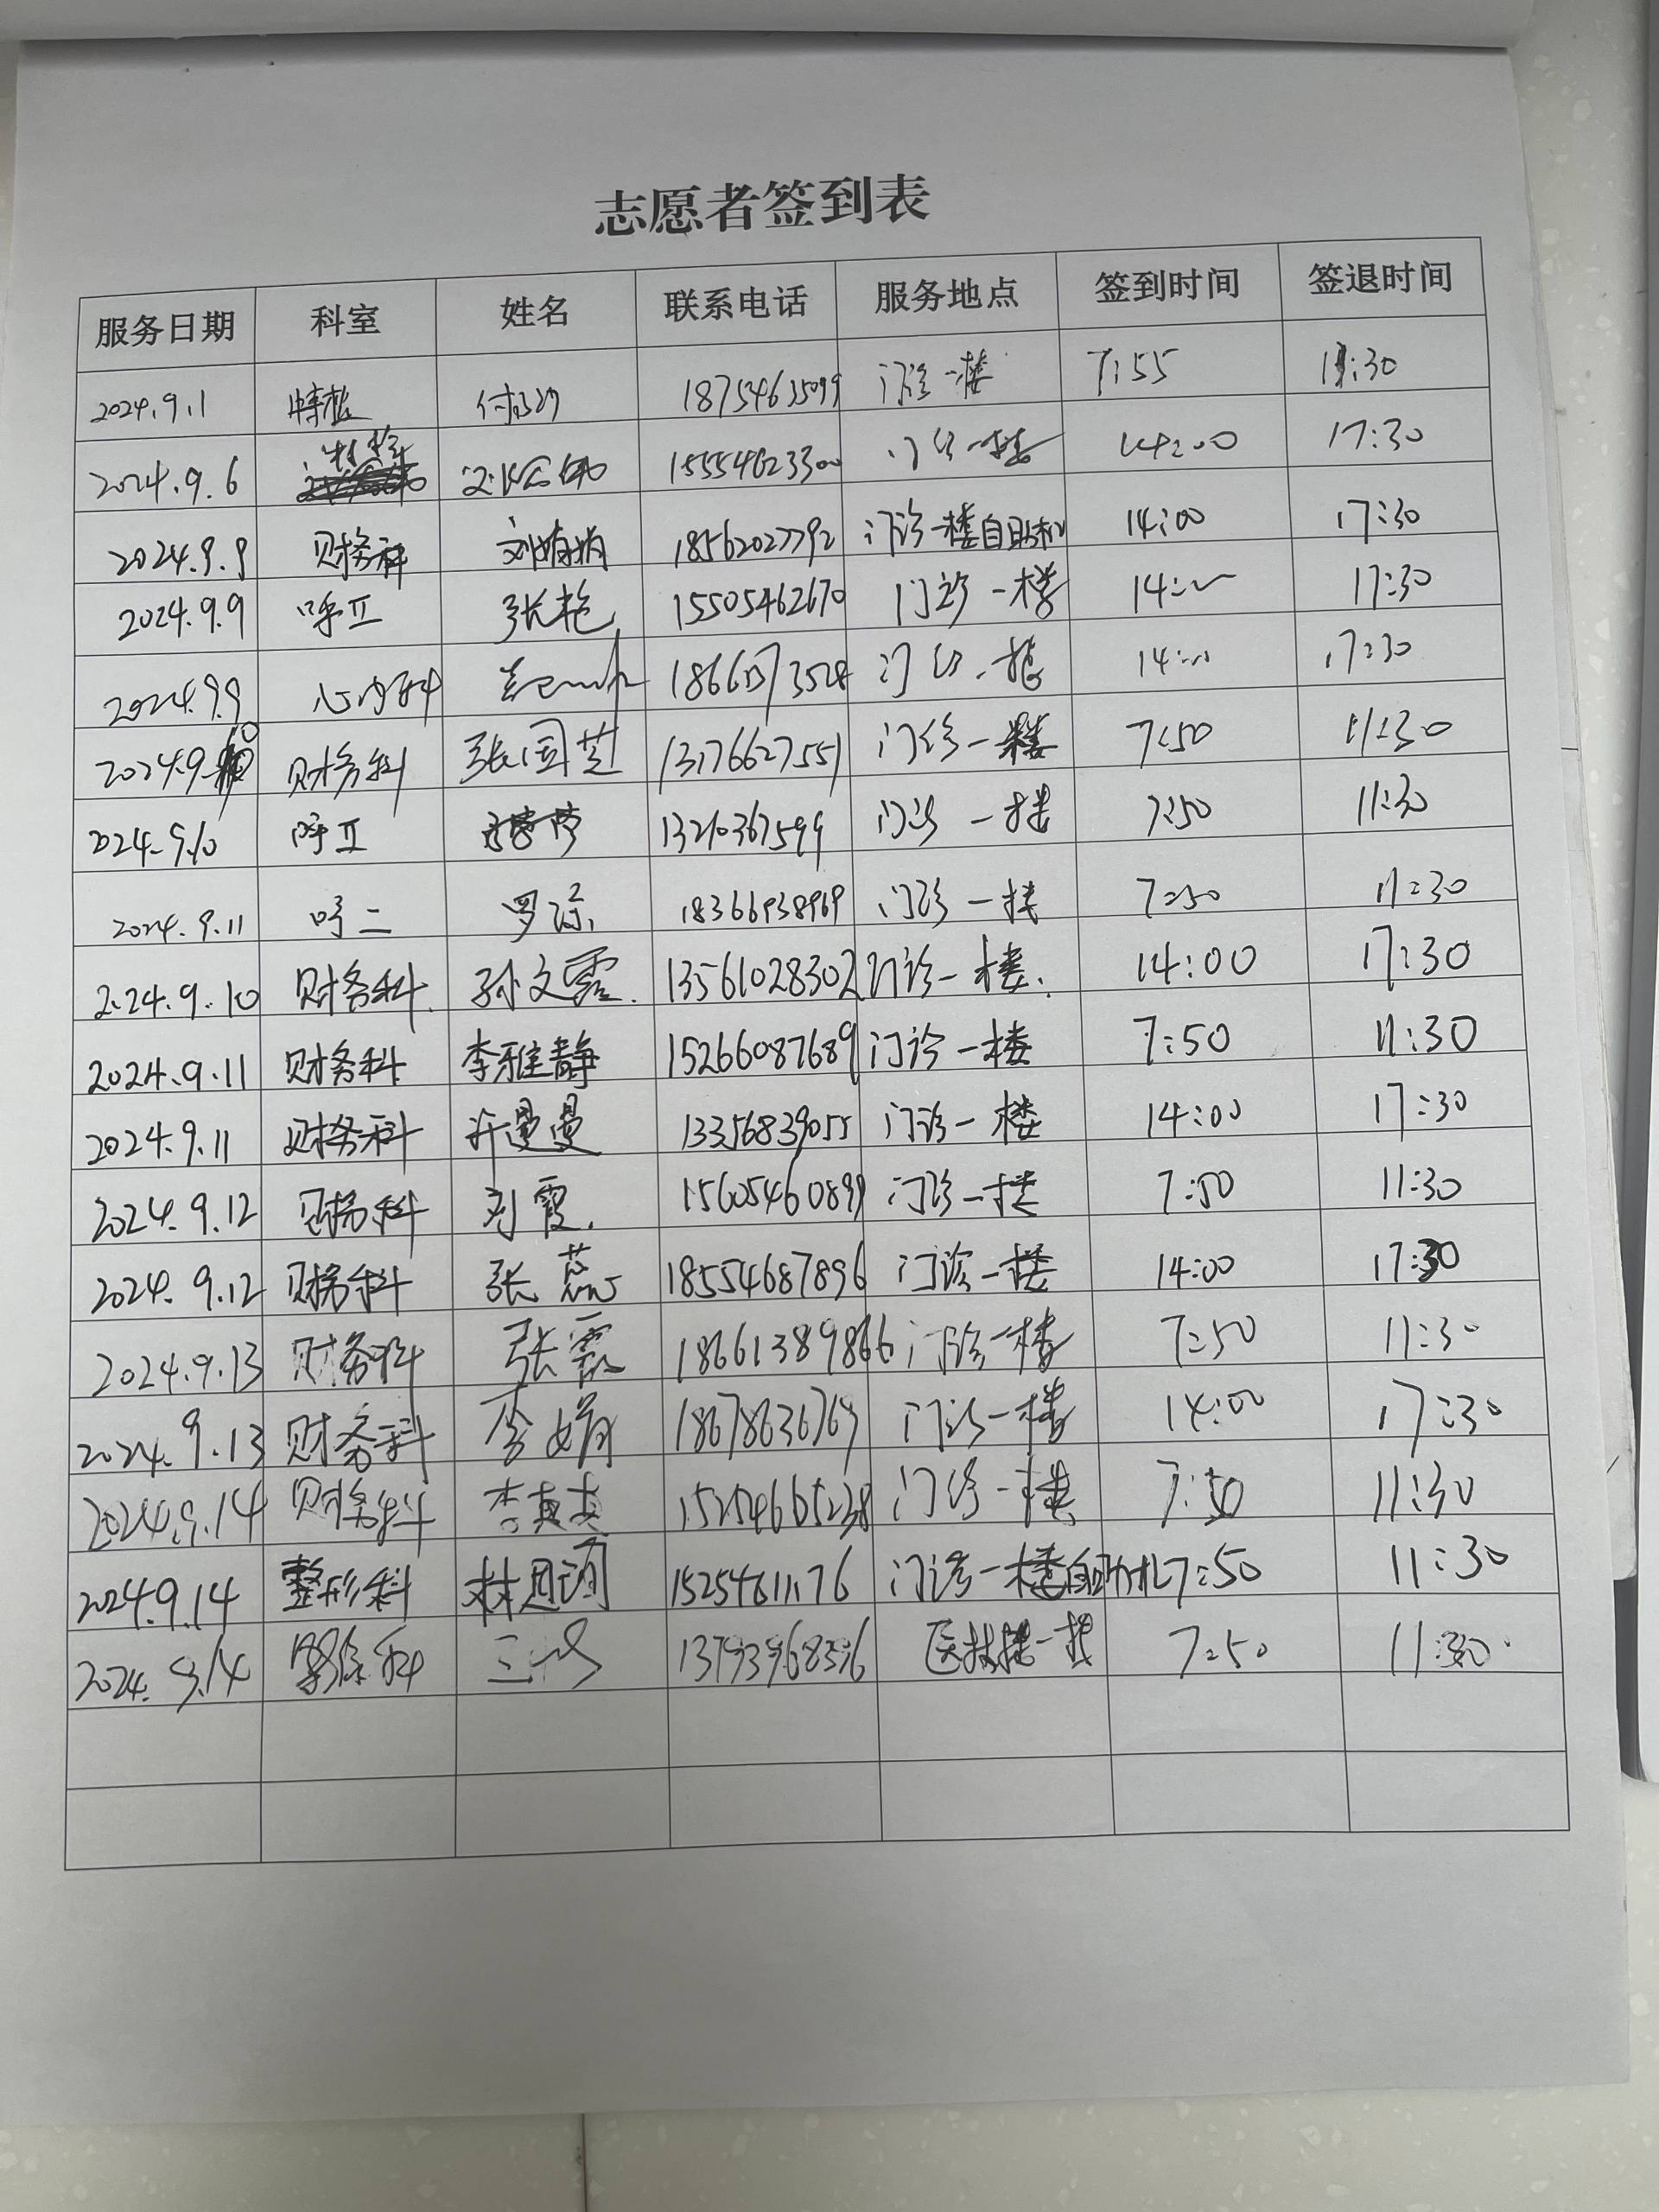 志愿者签到表
服务日期 科室 姓名 联系电话 服务地点 签到时间 签退时间
2024.9.1 特检 门诊一楼 7:55 11:30
2024.9.6 15554623300 门诊一楼 14:00 17:30
2024.9.9 财务科 刘娟娟 18562027792 门诊一楼自助机 14:00 17:30
2024.9.9 呼Ⅱ 张艳 15505462670 门诊一楼 14: 17:30
2024.9.9 心内科 门诊一楼 14: 17:30
2024.9.10 财务科 张国芝 13176627551 门诊一楼 7:50 11:30
2024.9.10 呼Ⅱ 13210367599 门诊一楼 7:50 11:30
2024.9.11 呼二 罗琼 18366938969 门诊一楼 7:50 11:30
2024.9.10 财务科 孙文霞 13561028302 门诊一楼 14:00 17:30
2024.9.11 财务科 李雅静 15266087689 门诊一楼 7:50 11:30
2024.9.11 财务科 许曼曼 13356839055 门诊一楼 14:00 17:30
2024.9.12 财务科 刘霞 15605460899 门诊一楼 7:50 11:30
2024.9.12 财务科 张蕊 18554687896 门诊一楼 14:00 17:30
2024.9.13 财务科 张霞 18661389866 门诊一楼 7:50 11:30
2024.9.13 财务科 李娟 18678636769 门诊一楼 14:00 17:30
2024.9.14 财务科 门诊一楼 7:50 11:30
2024.9.14 整形科 林思琦 15254611176 门诊一楼自助机 7:50 11:30
2024.9.14 医技楼一楼 7:50 11:30